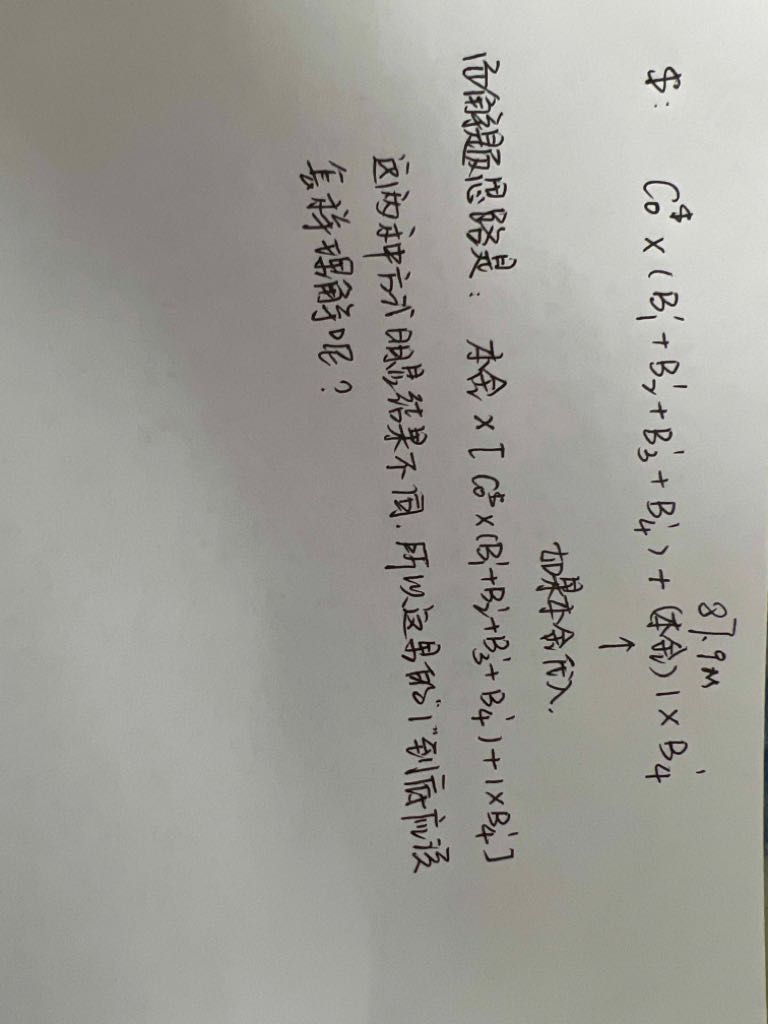 $: C₀$ × (B₁' + B₂' + B₃' + B₄') + (本金) 1 × B₄'
87.9M
↑
如果本金代入.
而解题思路是: 本金 × [C₀$ × (B₁' + B₂' + B₃' + B₄') + 1 × B₄']
这两种方式明显结果不同. 所以这里的"1"到底应该
怎样理解呢?